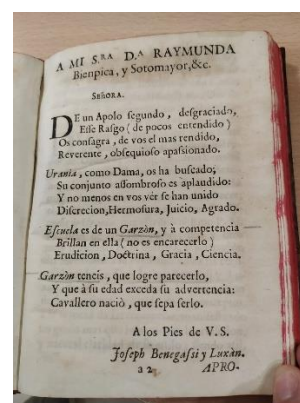 A MI S.RA D.A RAYMUNDA
Bienpica, y Sotomayor, &c.
SEÑORA.
DE un Apolo segundo, desgraciado,
Esse Rasgo (de pocos entendido)
Os consagra, de vos el mas rendido,
Reverente, obsequioso apasionado.
Urania, como Dama, os ha buscado;
Su conjunto assombroso es aplaudido:
Y no menos en vos vér se han unido
Discrecion, Hermosura, Juicio, Agrado.
Escuela es de un Garzòn, y à competencia
Brillan en ella (no es encarecerlo)
Erudicion, Doctrina, Gracia, Ciencia.
Garzòn teneis, que logre parecerlo,
Y que à su edad exceda su advertencia:
Cavallero naciò, que sepa serlo.
A los Pies de V. S.
Joseph Benegassi y Luxàn.
a 2 APRO-